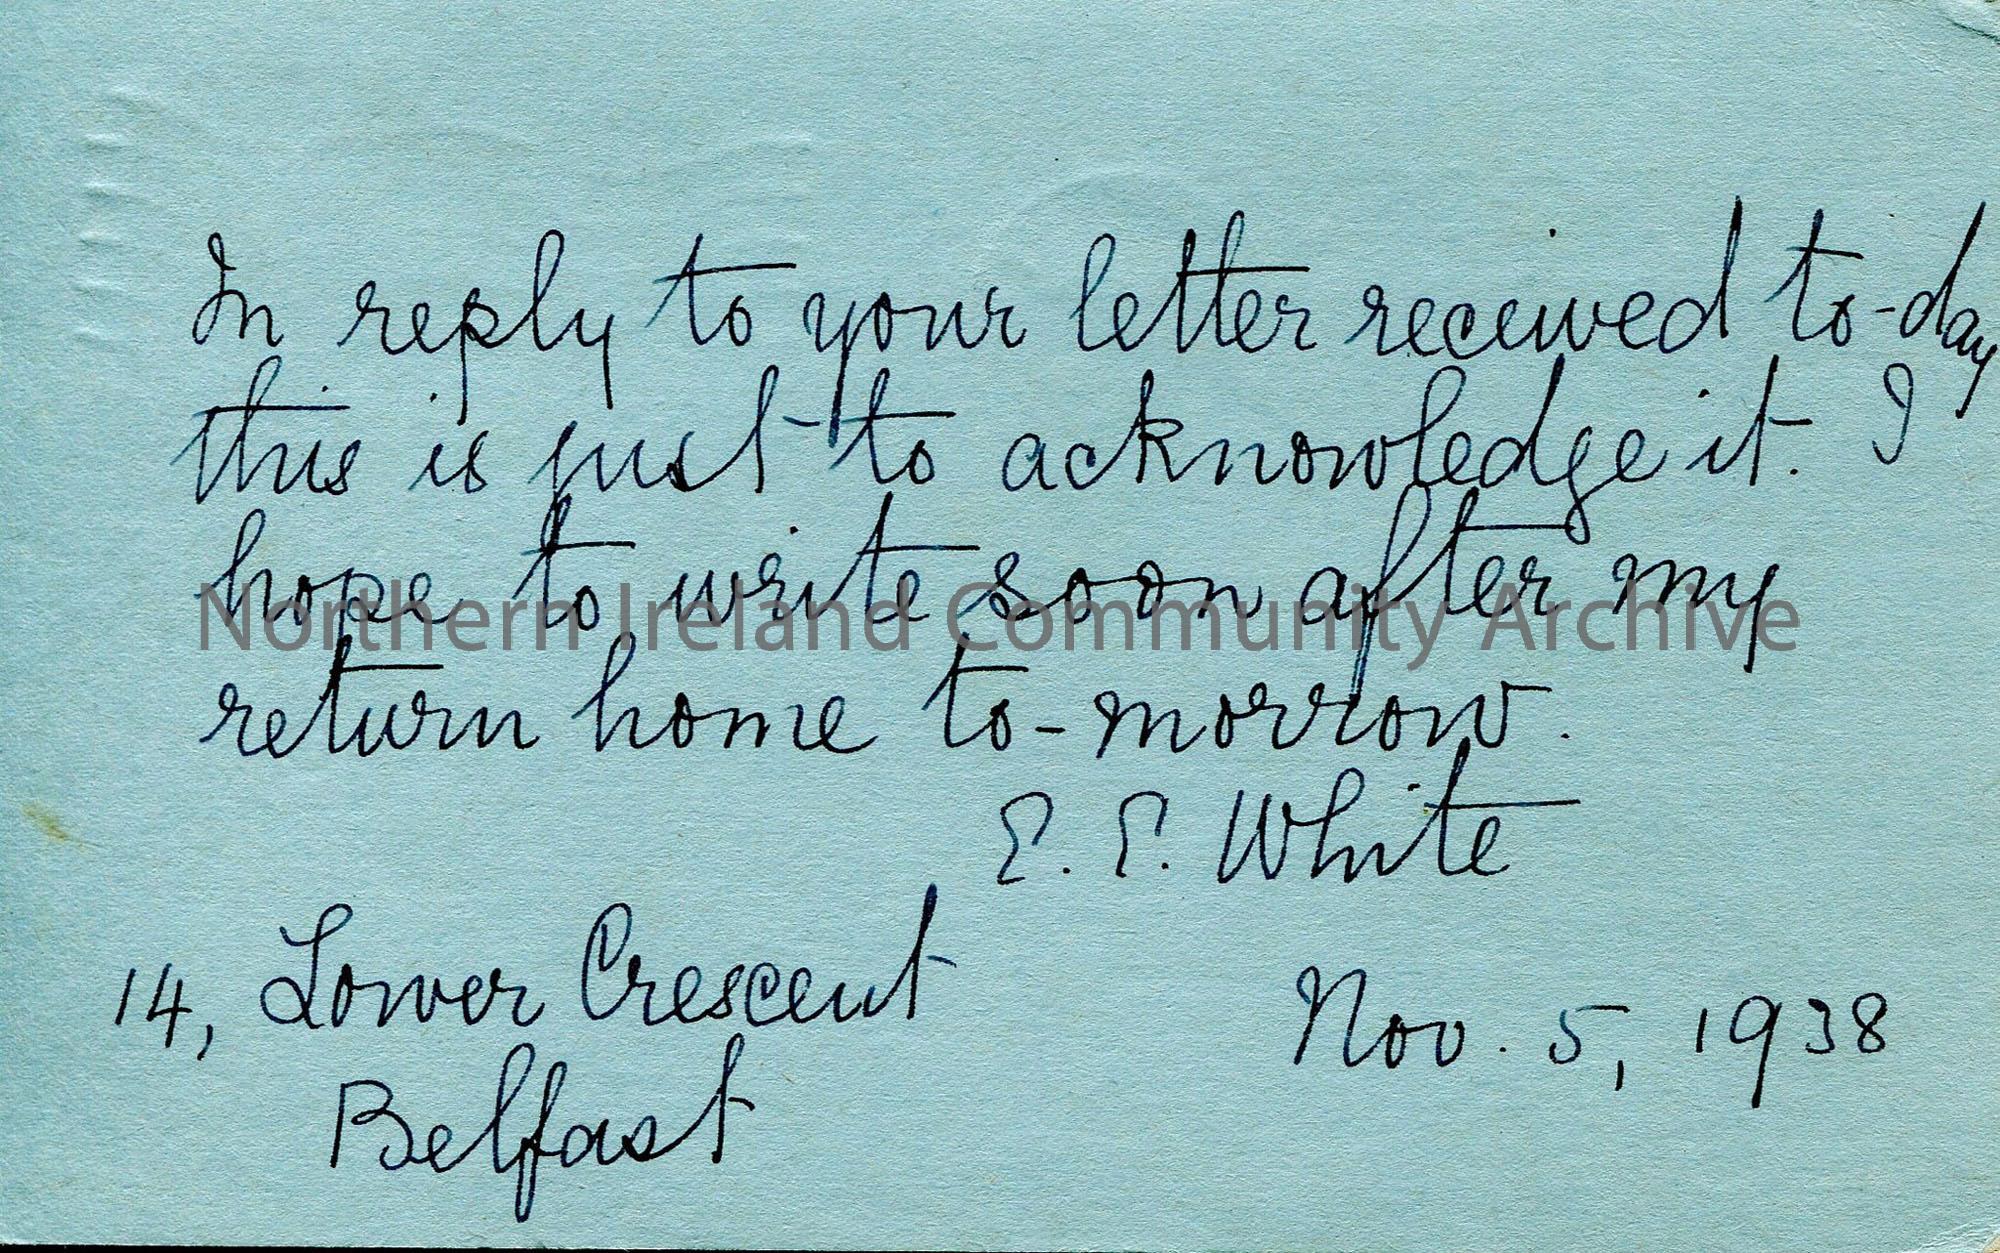 In reply to your letter received to-day
this is just to acknowledge it. I
hope to write soon after my
Northern Ireland Community Archive
return home to-morrow.
E. E. White
14, Lower Crescent
Belfast
Nov. 5, 1938